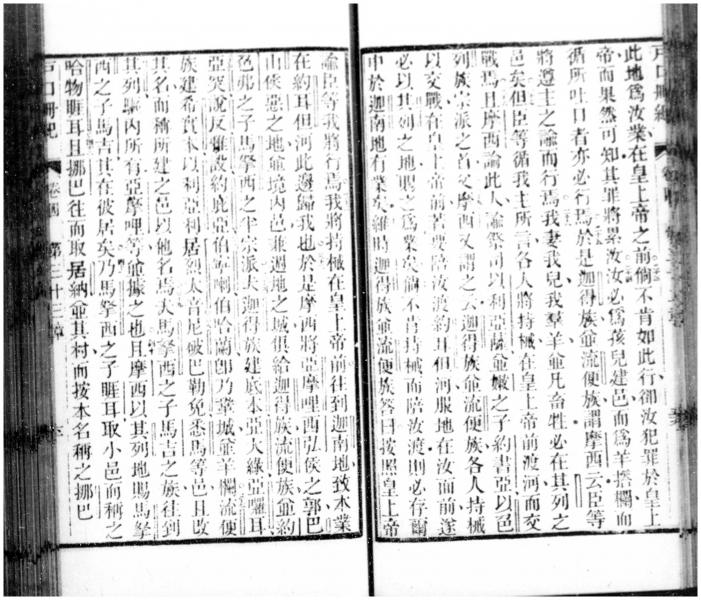 戶口冊紀
此地爲汝業在皇上帝之前倘不肯如此行卻汝犯罪於皇上
帝而果然可知其罪將累汝汝必爲孩兒建邑而爲羊搭欄而
循所吐口者亦必行焉於是迦得族並流便族謂摩西云臣等
將遵主之諭而行焉我妻我兒我羣羊並凡畜牲必在其列之
邑矣但臣等循我主所言各人將持械在皇上帝前渡河而交
戰焉且摩西諭此人諭祭司以利亞薩並嫩之子約書亞以邑
列族宗派之首父摩西又謂之云迦得族並流便族各人持械
以交戰在皇上帝前若要陪汝渡約耳但河服地在汝面前遂
必以其列之地賜之爲業矣倘不肯持械而陪汝渡則必存爾
中於迦南地有業矣維時迦得族並流便族答曰按照皇上帝
諭臣等我將行焉我將持械在皇上帝前往到迦南地致本業
在約耳但河此邊歸我也於是摩西將亞摩哩西弘侯之郭巴
山侯惡之地並境內邑兼週地之城俱給迦得族流便族並約
色弗之子馬拏西之半宗派夫迦得族建底本亞大綠亞囉耳
亞突說反雅設約庇亞伯寧喇伯哈蘭卽乃鞏城並羊欄流便
族建希實本以利亞利居烈太音尼破巴勒免悉馬等邑且改
其名而稱所建之邑以他名焉夫馬拏西之子馬吉之族往到
其列驅內所有亞摩哩等並據之也且摩西以其列地賜馬拏
西之子馬吉其在彼居矣乃馬拏西之子睚耳取小邑而稱之
哈物睚耳且挪巴往而取居納並其村而按本名稱之挪巴
戶口冊紀 卷四 第三十三章